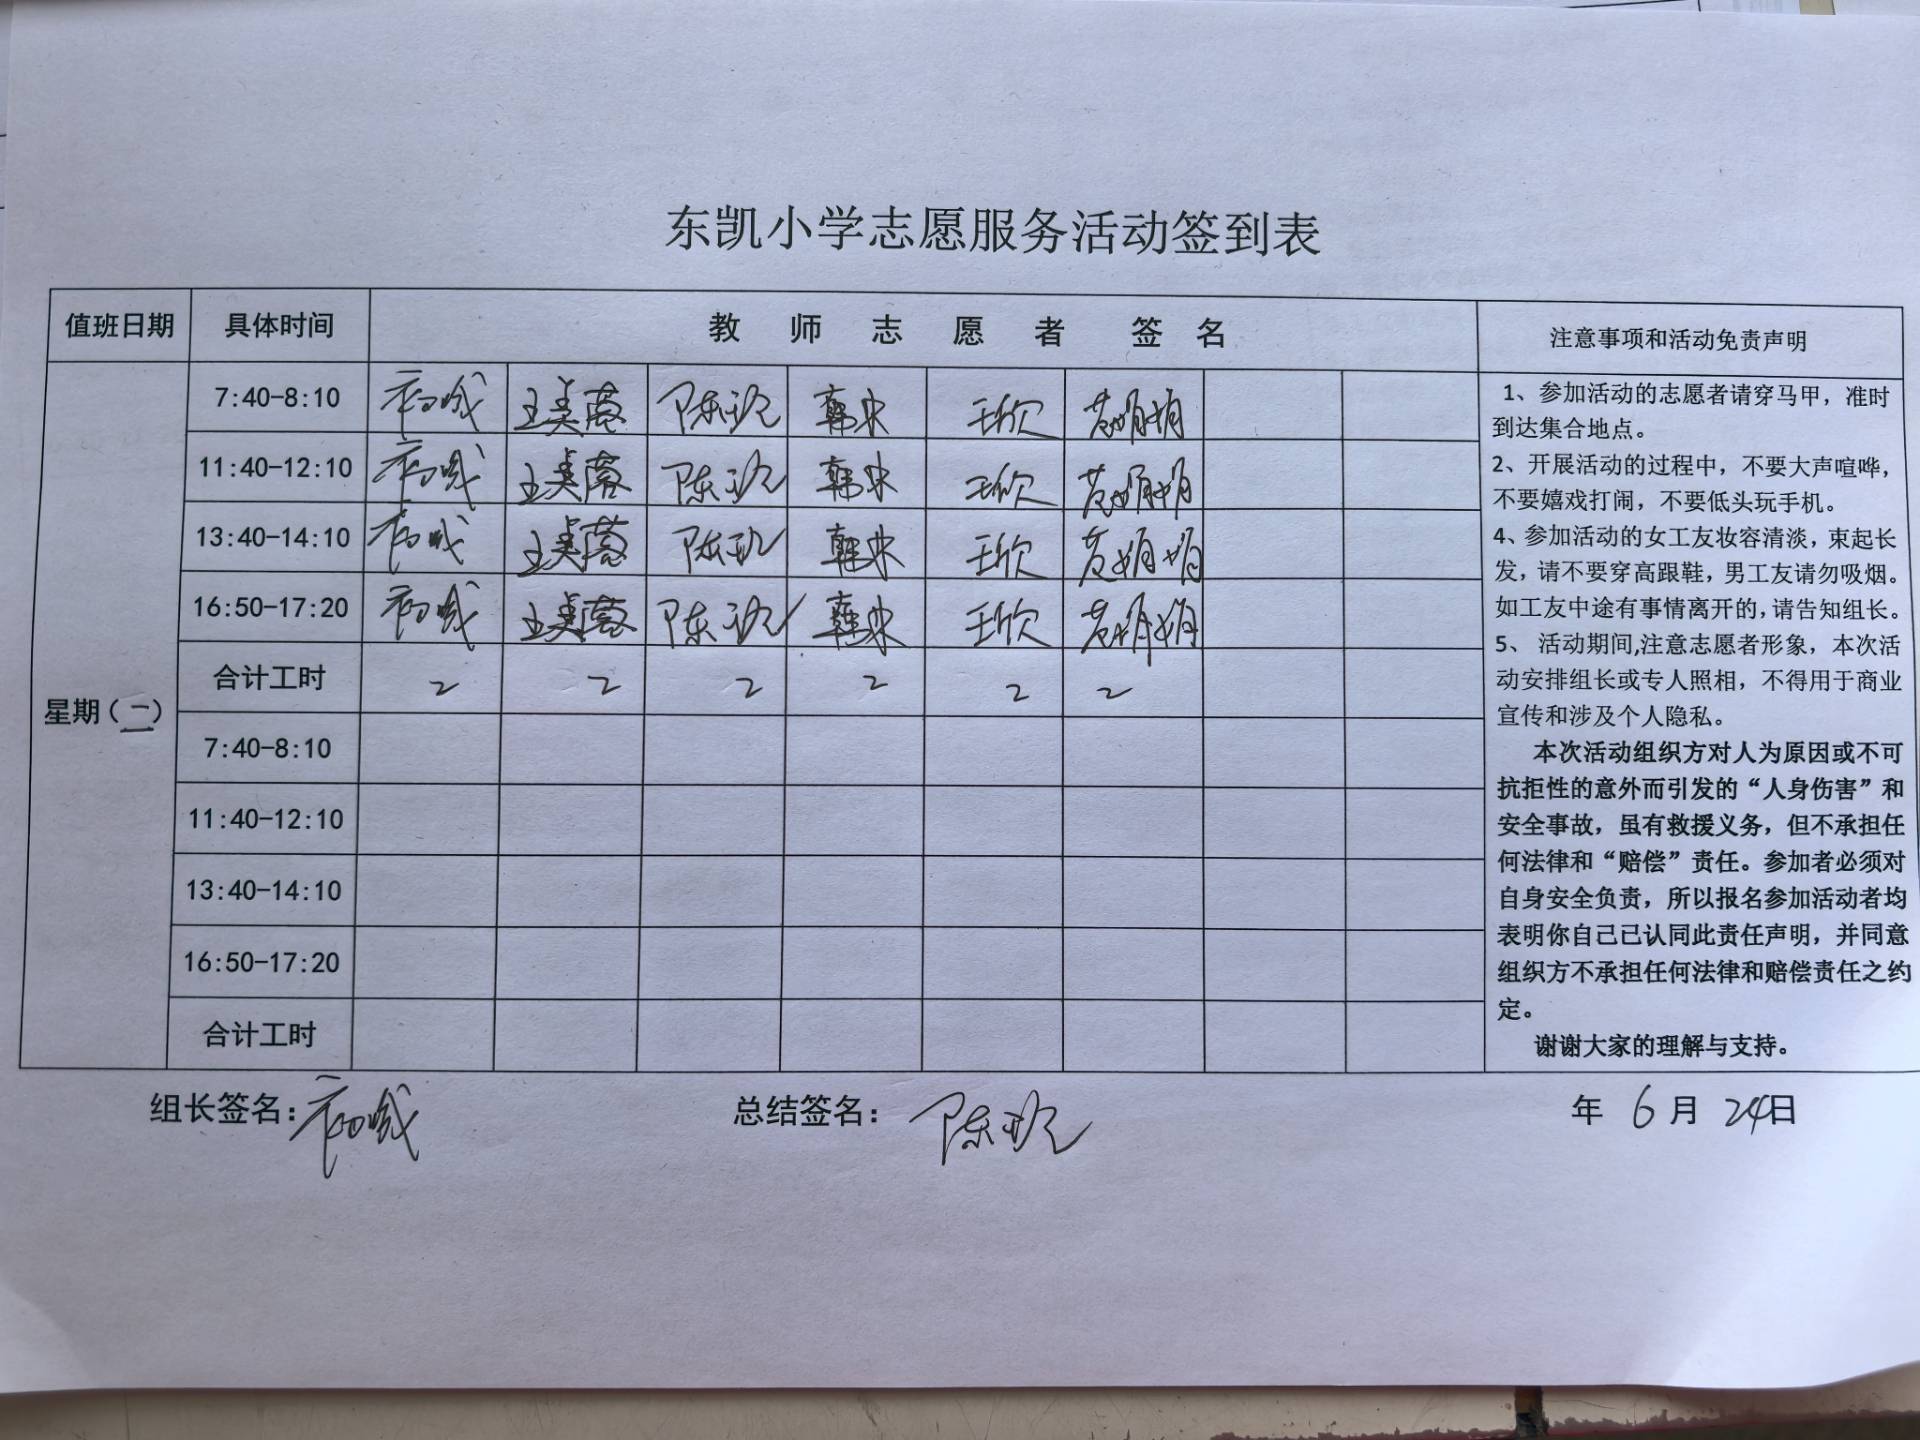 东凯小学志愿服务活动签到表
值班日期 具体时间 教师志愿者 签名 注意事项和活动免责声明
星期(二)
7:40-8:10 王美蓉 韩忠 王欣
11:40-12:10 王美蓉 韩忠 王欣
13:40-14:10 王美蓉 韩忠 王欣
16:50-17:20 王美蓉 韩忠 王欣
合计工时 2 2 2 2 2 2
7:40-8:10
11:40-12:10
13:40-14:10
16:50-17:20
合计工时
1、参加活动的志愿者请穿马甲，准时
到达集合地点。
2、开展活动的过程中，不要大声喧哗，
不要嬉戏打闹，不要低头玩手机。
4、参加活动的女工友妆容清淡，束起长
发，请不要穿高跟鞋，男工友请勿吸烟。
如工友中途有事情离开的，请告知组长。
5、 活动期间,注意志愿者形象，本次活
动安排组长或专人照相，不得用于商业
宣传和涉及个人隐私。
本次活动组织方对人为原因或不可
抗拒性的意外而引发的“人身伤害”和
安全事故，虽有救援义务，但不承担任
何法律和“赔偿”责任。参加者必须对
自身安全负责，所以报名参加活动者均
表明你自己已认同此责任声明，并同意
组织方不承担任何法律和赔偿责任之约
定。
谢谢大家的理解与支持。
组长签名： 总结签名： 年 6月 24日